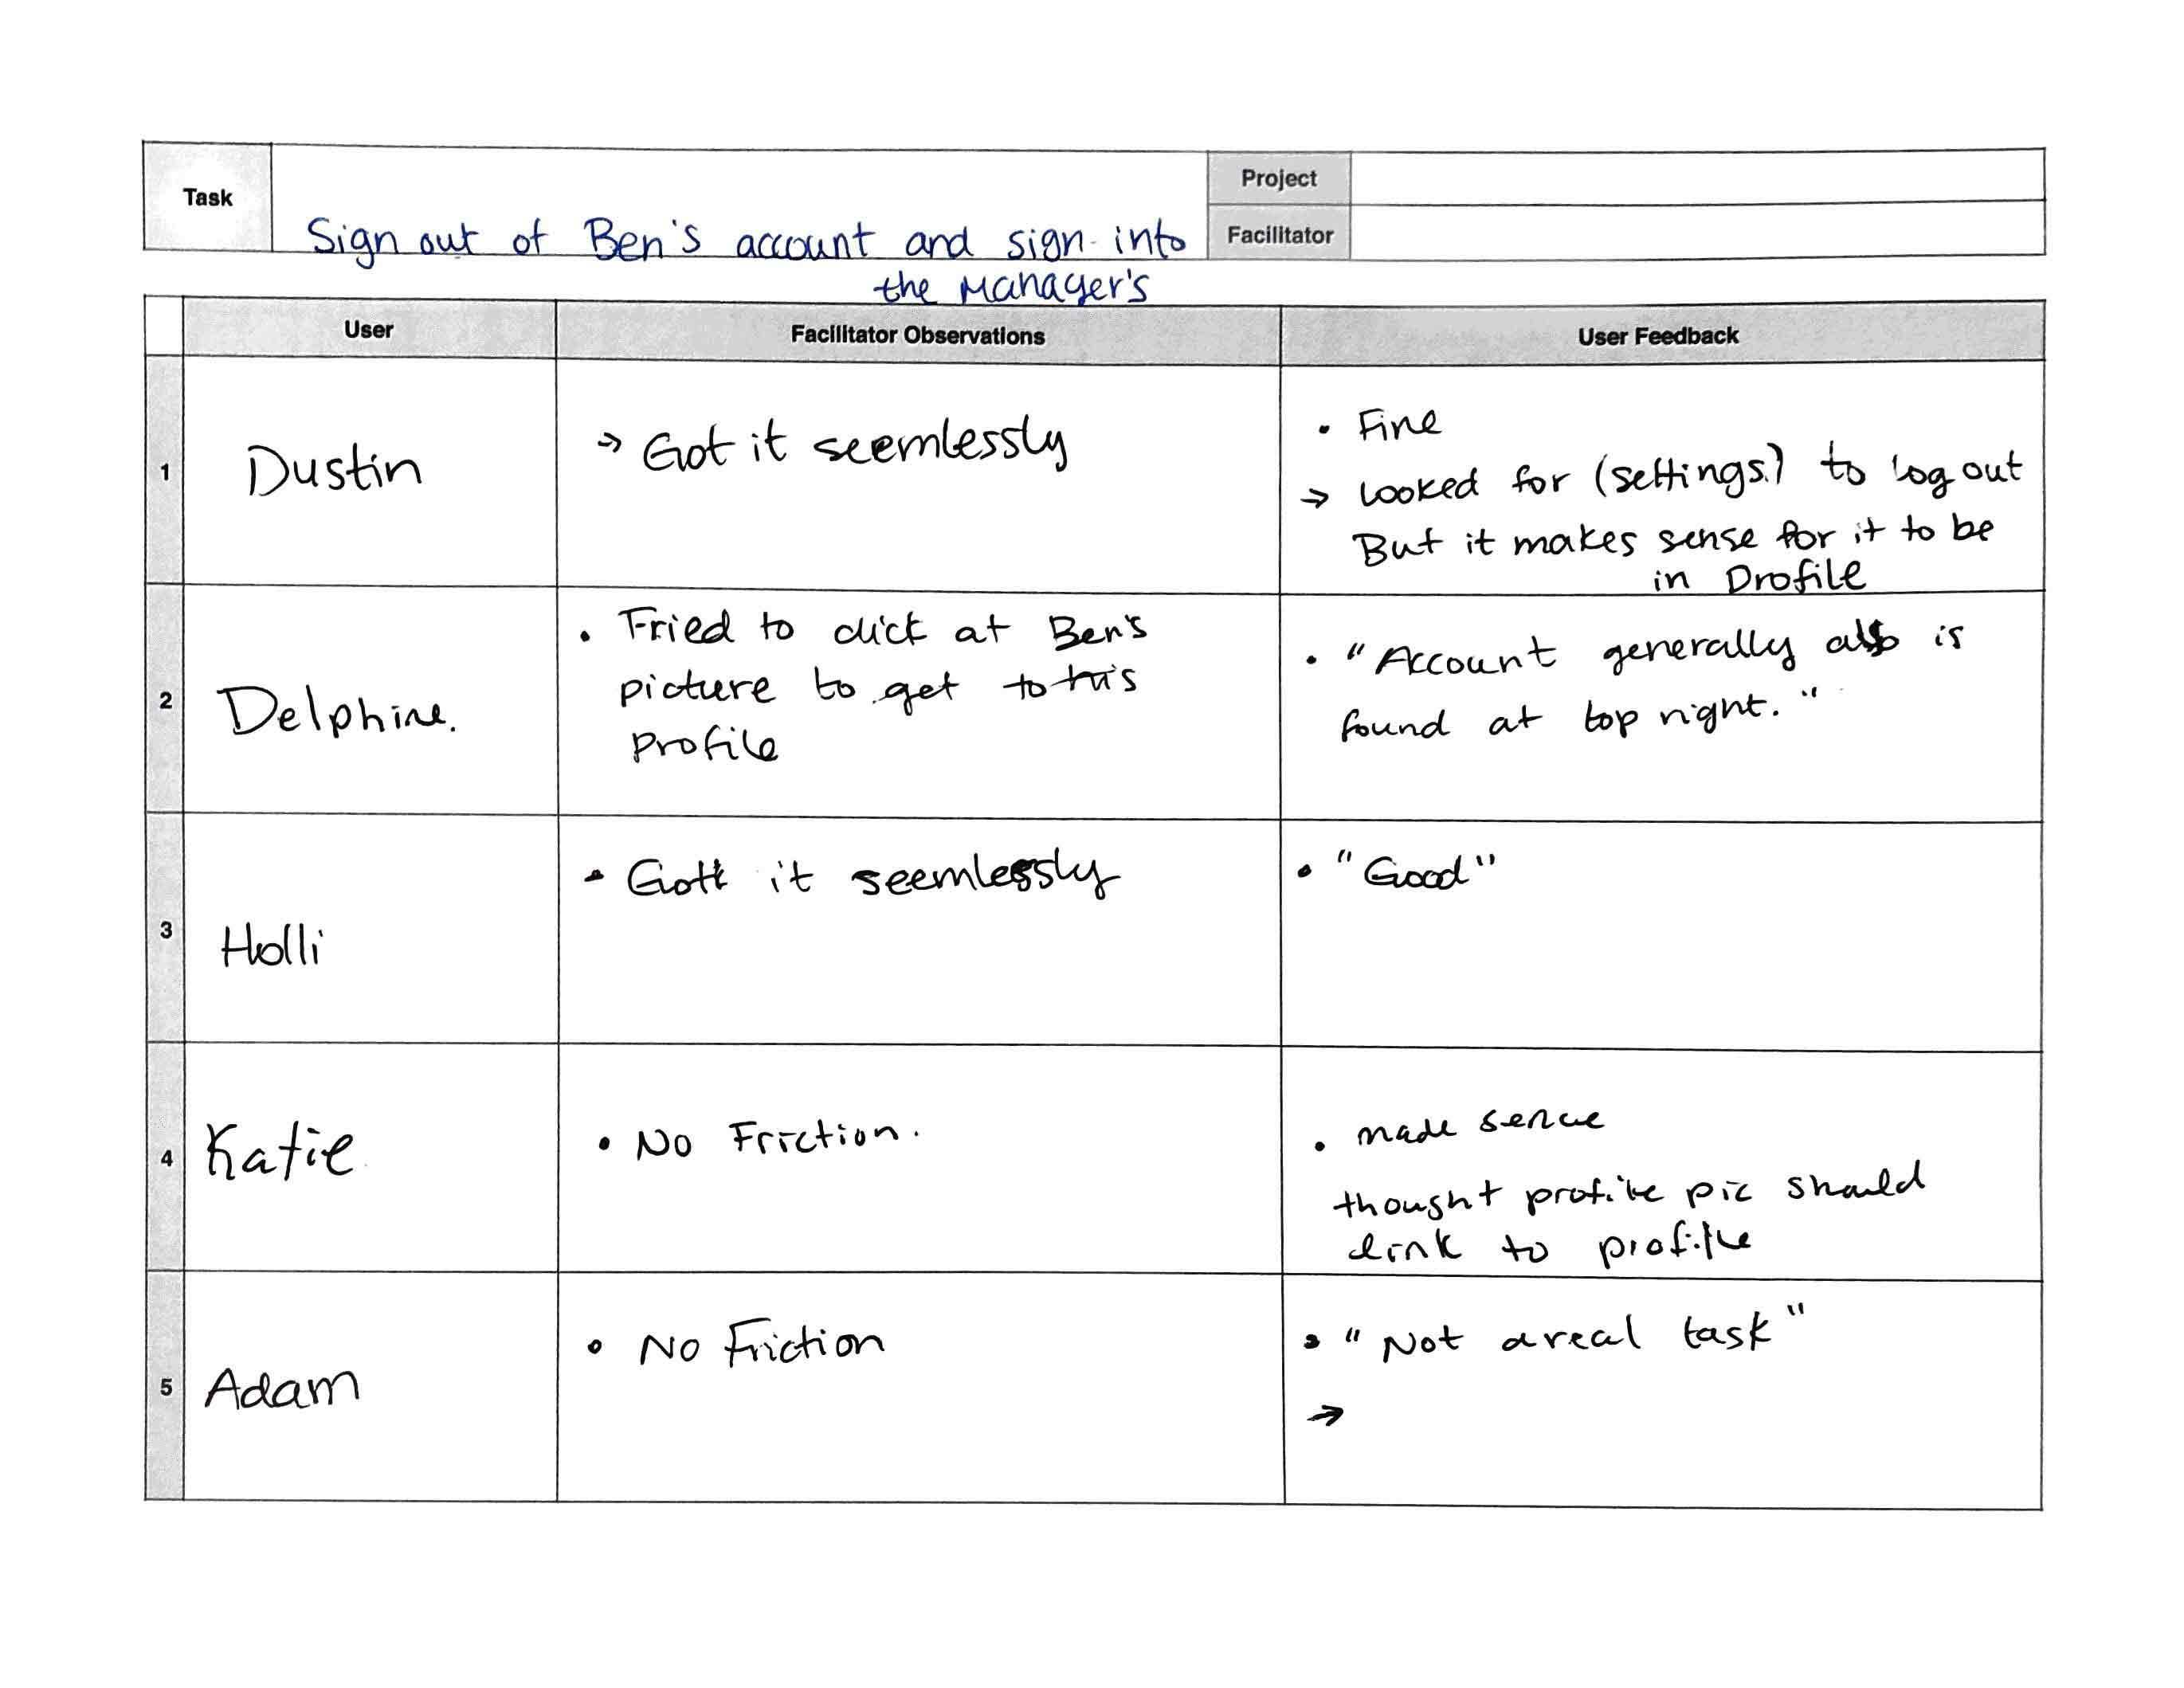 Task
Project
Sign out of Ben's account and sign into
Facilitator
the Manager's
User Facilitator Observations User Feedback
1
Dustin
→ Got it seemlessly
• Fine
→ looked for (settings?) to log out
But it makes sense for it to be
in Profile
2
Delphine.
• Tried to click at Ben's
picture to get to his
profile
• "Account generally also is
found at top right."
3
Holli
• Gott it seemlessly
• "Good"
4
Katie
• No Friction.
• made sence
thought profile pic should
link to profile
5
Adam
• No Friction
• "Not a real task"
→